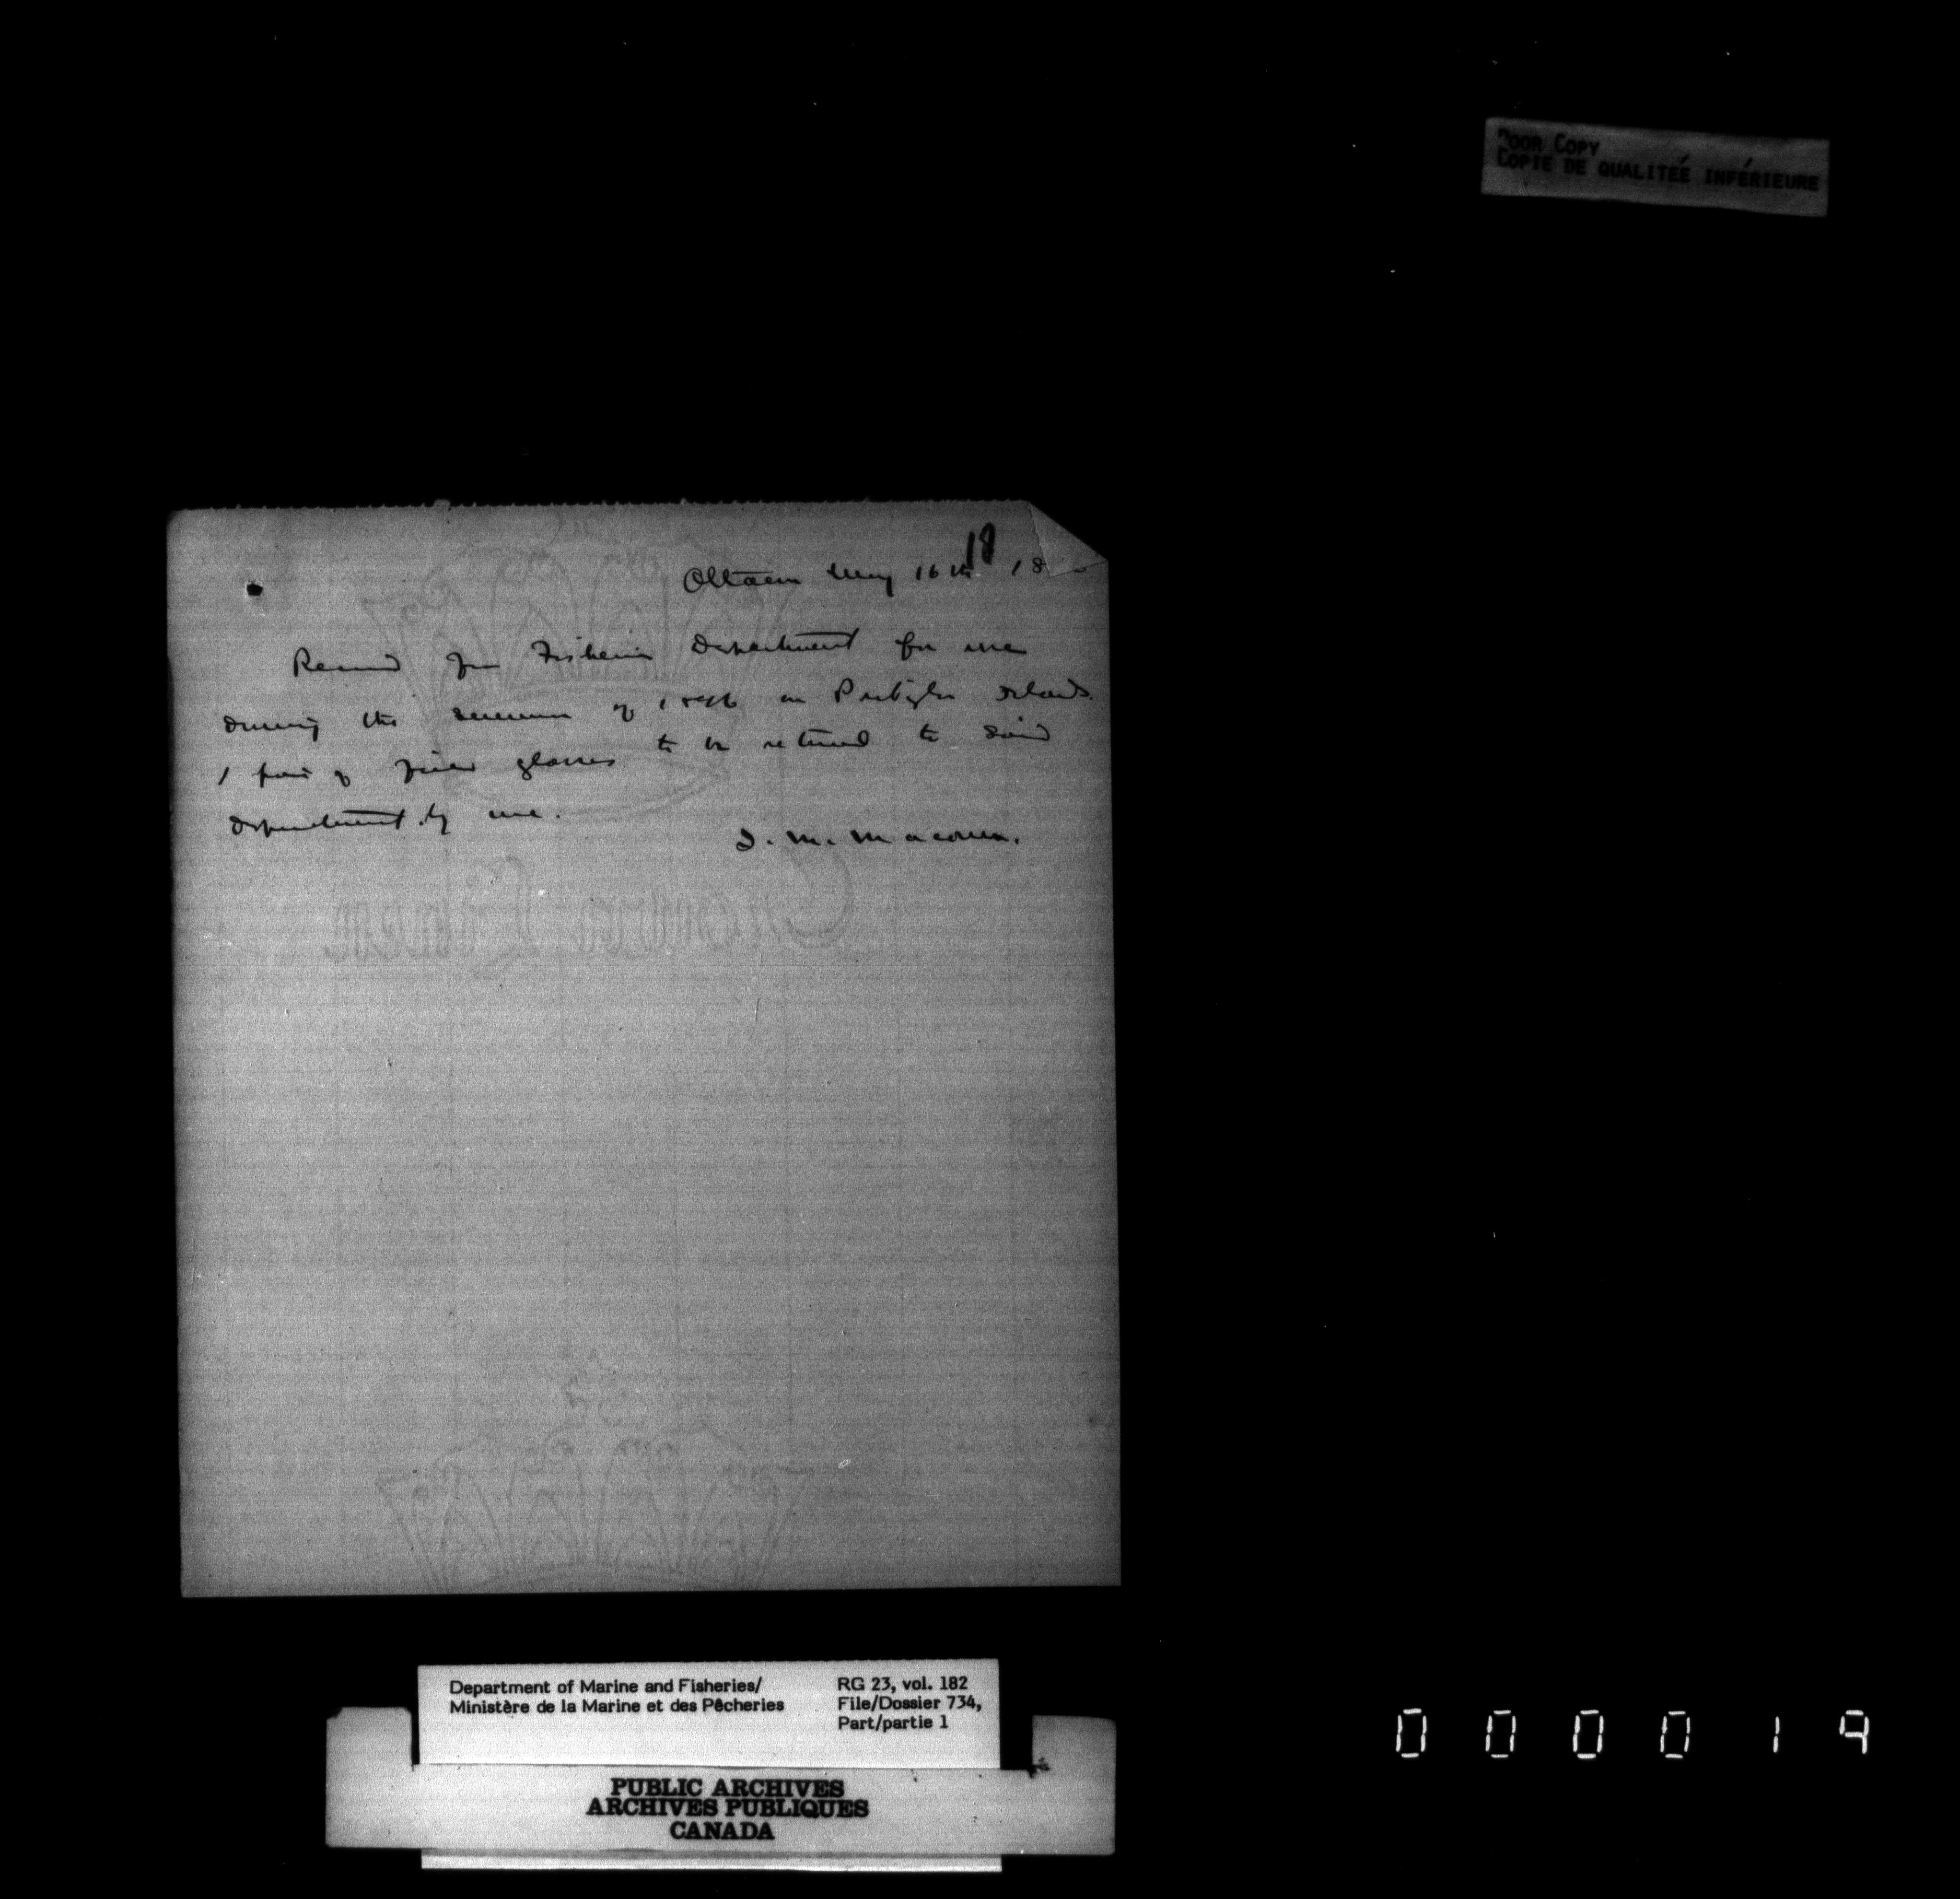 POOR COPY
COPIE DE QUALITEÉ INFÉRIEURE
18
Ottawa May 16th 18
Received from Fisheries Department for use
during the summer of 1896 on Pribylov Islands
1 pair of field glasses to be returned to said
department by me.
J. M. Macoun.
Crown Linen
Department of Marine and Fisheries/
Ministère de la Marine et des Pêcheries
RG 23, vol. 182
File/Dossier 734,
Part/partie 1
PUBLIC ARCHIVES
ARCHIVES PUBLIQUES
CANADA
000019